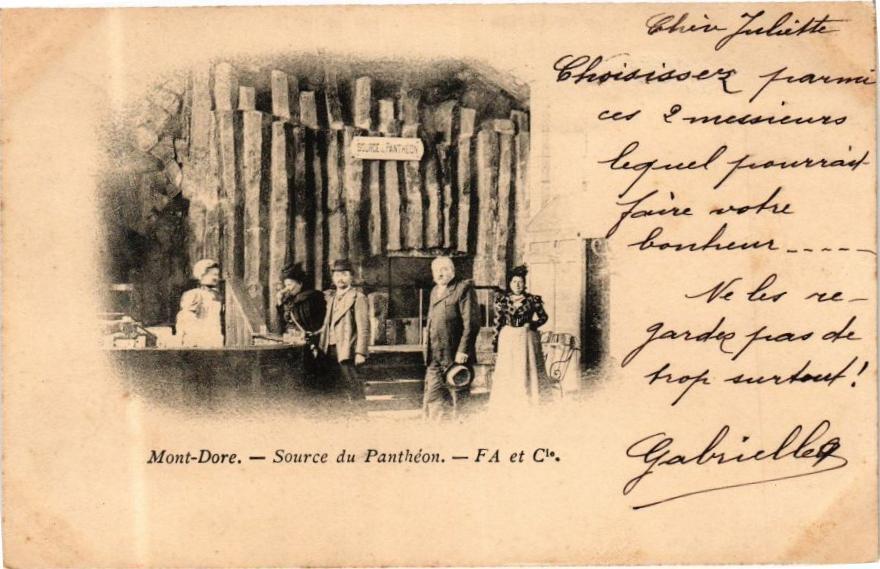 Chèr Juliette
Choisissez parmi
ces 2 messieurs
lequel pourrait
faire votre
bonheur_ _ _ _ _
Ne les re-
gardez pas de
trop surtout!
Gabrielle
SOURCE DU PANTHÉON
Mont-Dore. — Source du Panthéon. — FA et Cie.